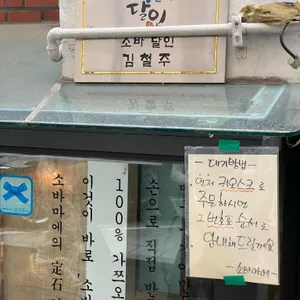 달인
소바 달인
김철주
- 대기방법 -
먼저 키오스크로
주문하시면
그 번호표 순서로
안내해 드립니다
- 소바마에 -
손으로 직접 반
100% 가쯔오
이것이 바로 '소바
소바마에의 定石